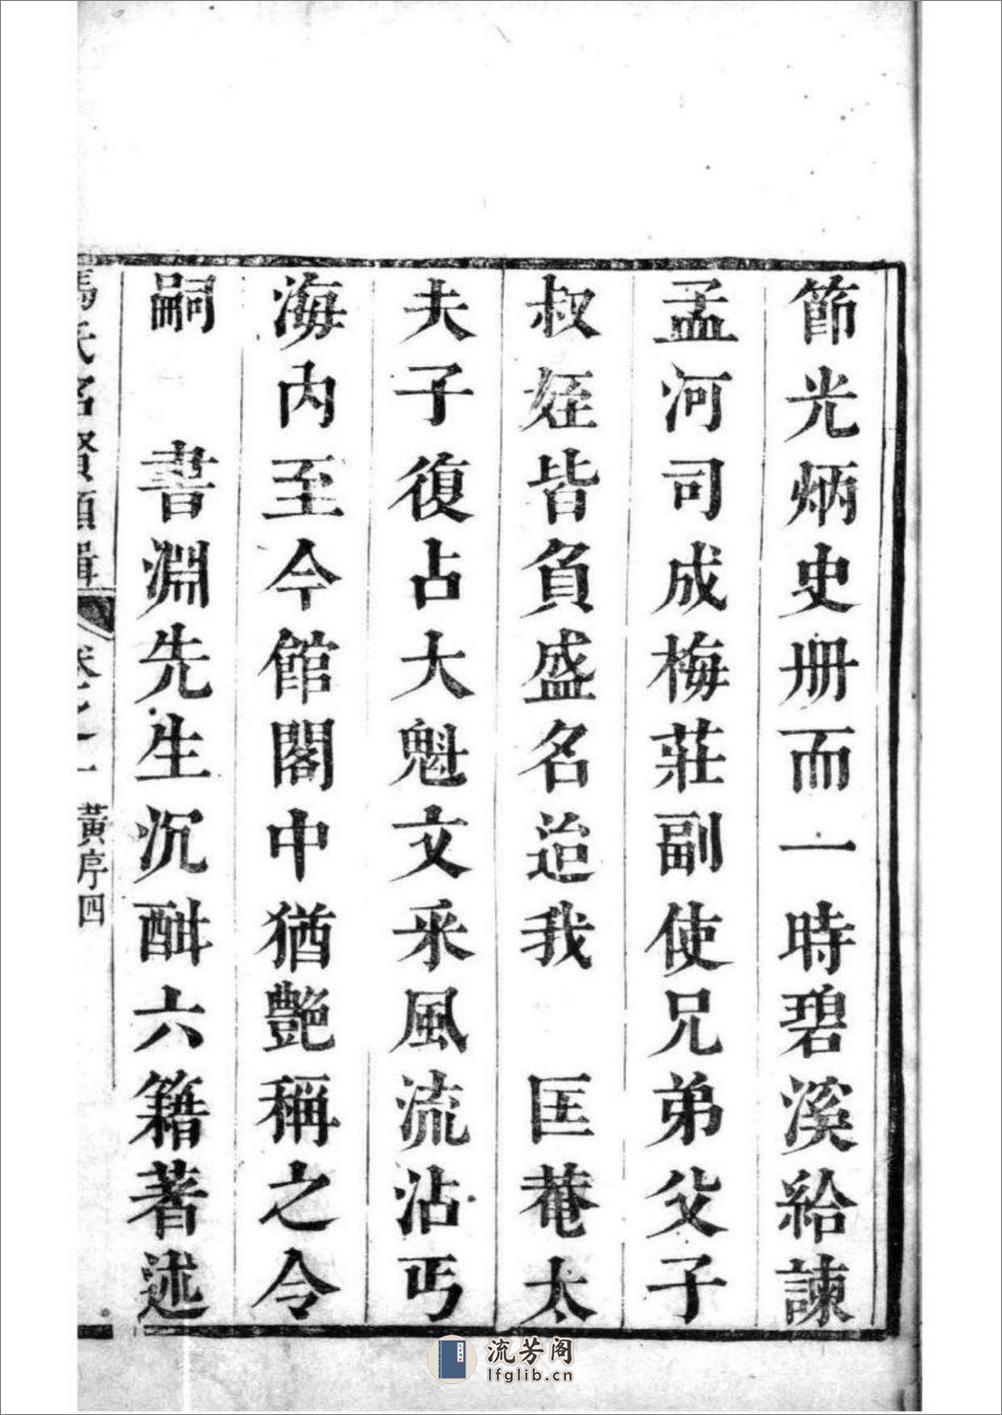 節光炳史册而一時碧溪給諫
孟河司成梅莊副使兄弟父子
叔姪皆負盛名迨我　匡菴太
夫子復占大魁文采風流沾丐
海内至今館閣中猶艷稱之令
嗣　書淵先生沉酣六籍著述
馮氏名賢類輯
卷之一
黃序四
流芳阁
lfglib.cn